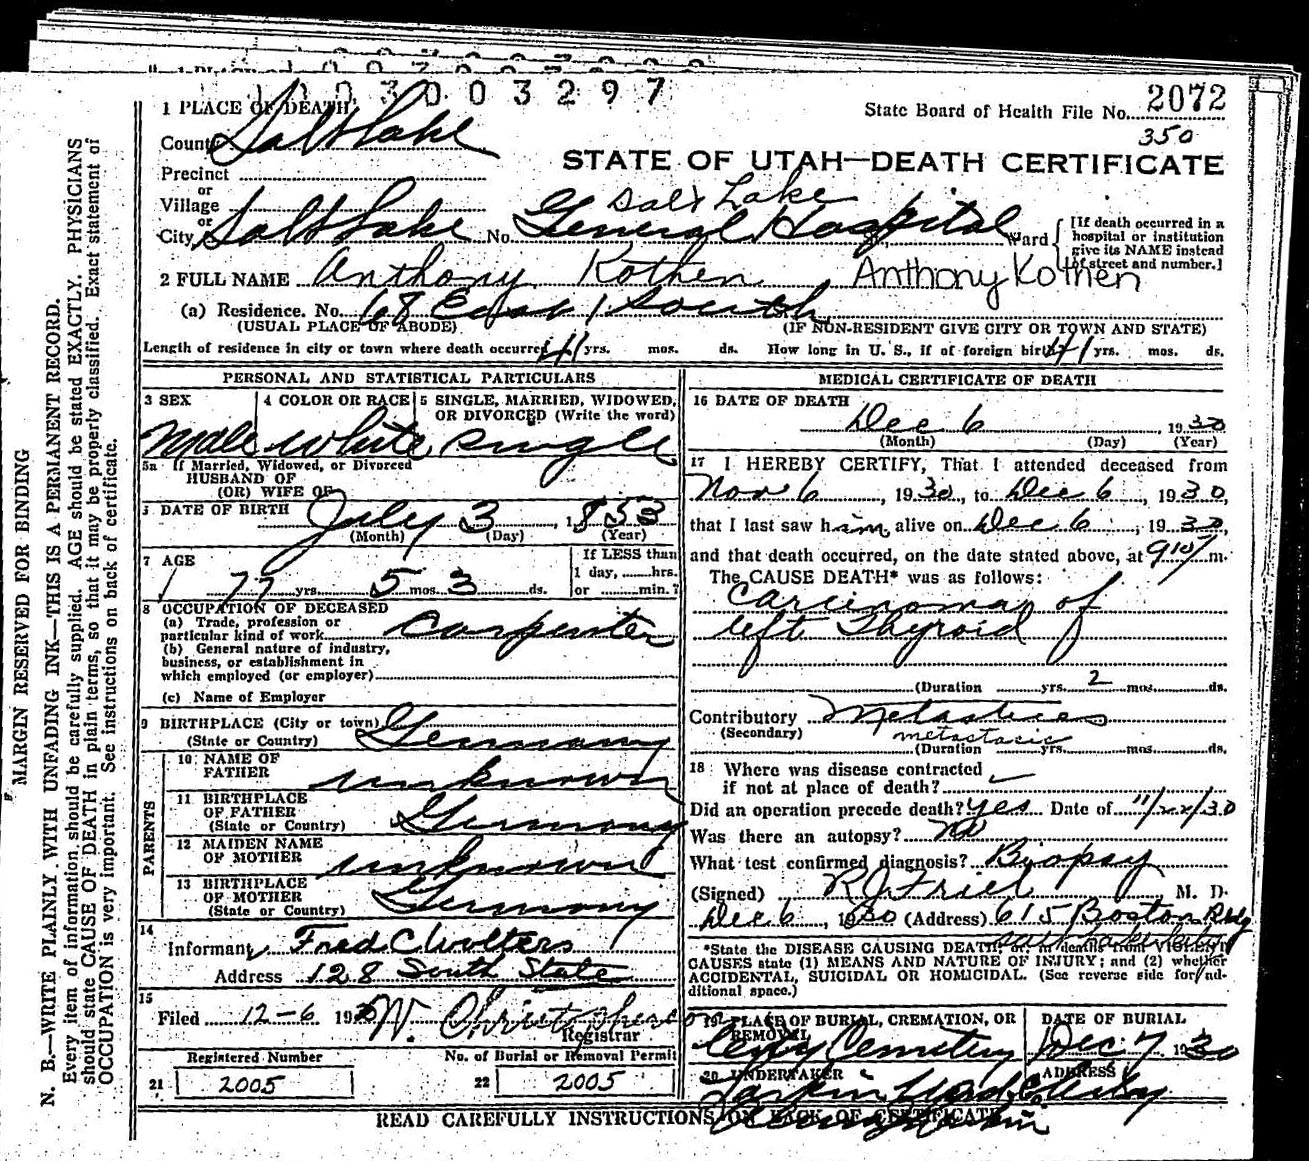 1 0 3 0 0 3 2 9 7
1 PLACE OF DEATH
State Board of Health File No. 2072
350
County Salt Lake
STATE OF UTAH—DEATH CERTIFICATE
Precinct
or
Village
or
Salt Lake
City Salt Lake No. General Hospital Ward
[If death occurred in a
hospital or institution
give its NAME instead
of street and number.]
2 FULL NAME Anthony Kothen Anthony Kothen
(a) Residence. No. 68 East 1 South
(USUAL PLACE OF ABODE) (IF NON-RESIDENT GIVE CITY OR TOWN AND STATE)
Length of residence in city or town where death occurred 41 yrs. mos. ds. How long in U. S., if of foreign birth 41 yrs. mos. ds.
PERSONAL AND STATISTICAL PARTICULARS
3 SEX 4 COLOR OR RACE 5 SINGLE, MARRIED, WIDOWED,
OR DIVORCED (Write the word)
Male White Single
5a If Married, Widowed, or Divorced
HUSBAND OF
(OR) WIFE OF
DATE OF BIRTH July 3, 1853
(Month) (Day) (Year)
7 AGE
If LESS than
1 day, ......hrs.
or ......min.?
77 yrs. 5 mos. 3 ds.
8 OCCUPATION OF DECEASED
(a) Trade, profession or
particular kind of work Carpenter
(b) General nature of industry,
business, or establishment in
which employed (or employer)
(c) Name of Employer
9 BIRTHPLACE (City or town)
(State or Country) Germany
PARENTS
10 NAME OF
FATHER unknown
11 BIRTHPLACE
OF FATHER
(State or Country) Germany
12 MAIDEN NAME
OF MOTHER unknown
13 BIRTHPLACE
OF MOTHER
(State or Country) Germany
14
Informant Fred C Wolters
Address 128 South State
15
Filed 12-6 19
Registrar
Registered Number No. of Burial or Removal Permit
21 2005 22 2005
MEDICAL CERTIFICATE OF DEATH
16 DATE OF DEATH
Dec 6, 1930
(Month) (Day) (Year)
17 I HEREBY CERTIFY, That I attended deceased from
Nov 6, 1930, to Dec 6, 1930,
that I last saw him alive on Dec 6, 1930,
and that death occurred, on the date stated above, at m.
The CAUSE DEATH* was as follows:
Carcinoma of
left Thyroid
(Duration yrs. 2 mos. ds.
Contributory Metastices
(Secondary) metastasic
(Duration yrs. mos. ds.
18 Where was disease contracted
if not at place of death?
Did an operation precede death? yes Date of 11/22/30
Was there an autopsy? no
What test confirmed diagnosis? Biopsy
(Signed) R J Friel M. D.
Dec 6, 1930 (Address) 615 Boston Bldg
*State the DISEASE CAUSING DEATH, or, in deaths from VIOLENT
CAUSES state (1) MEANS AND NATURE OF INJURY; and (2) whether
ACCIDENTAL, SUICIDAL OR HOMICIDAL. (See reverse side for ad-
ditional space.)
19 PLACE OF BURIAL, CREMATION, OR
REMOVAL
DATE OF BURIAL
City Cemetery Dec 7 1930
20 UNDERTAKER ADDRESS
READ CAREFULLY INSTRUCTIONS ON BACK OF CERTIFICATE
MARGIN RESERVED FOR BINDING
N. B.—WRITE PLAINLY WITH UNFADING INK—THIS IS A PERMANENT RECORD.
Every item of information should be carefully supplied. AGE should be stated EXACTLY. PHYSICIANS
should state CAUSE OF DEATH in plain terms, so that it may be properly classified. Exact statement of
OCCUPATION is very important. See instructions on back of certificate.